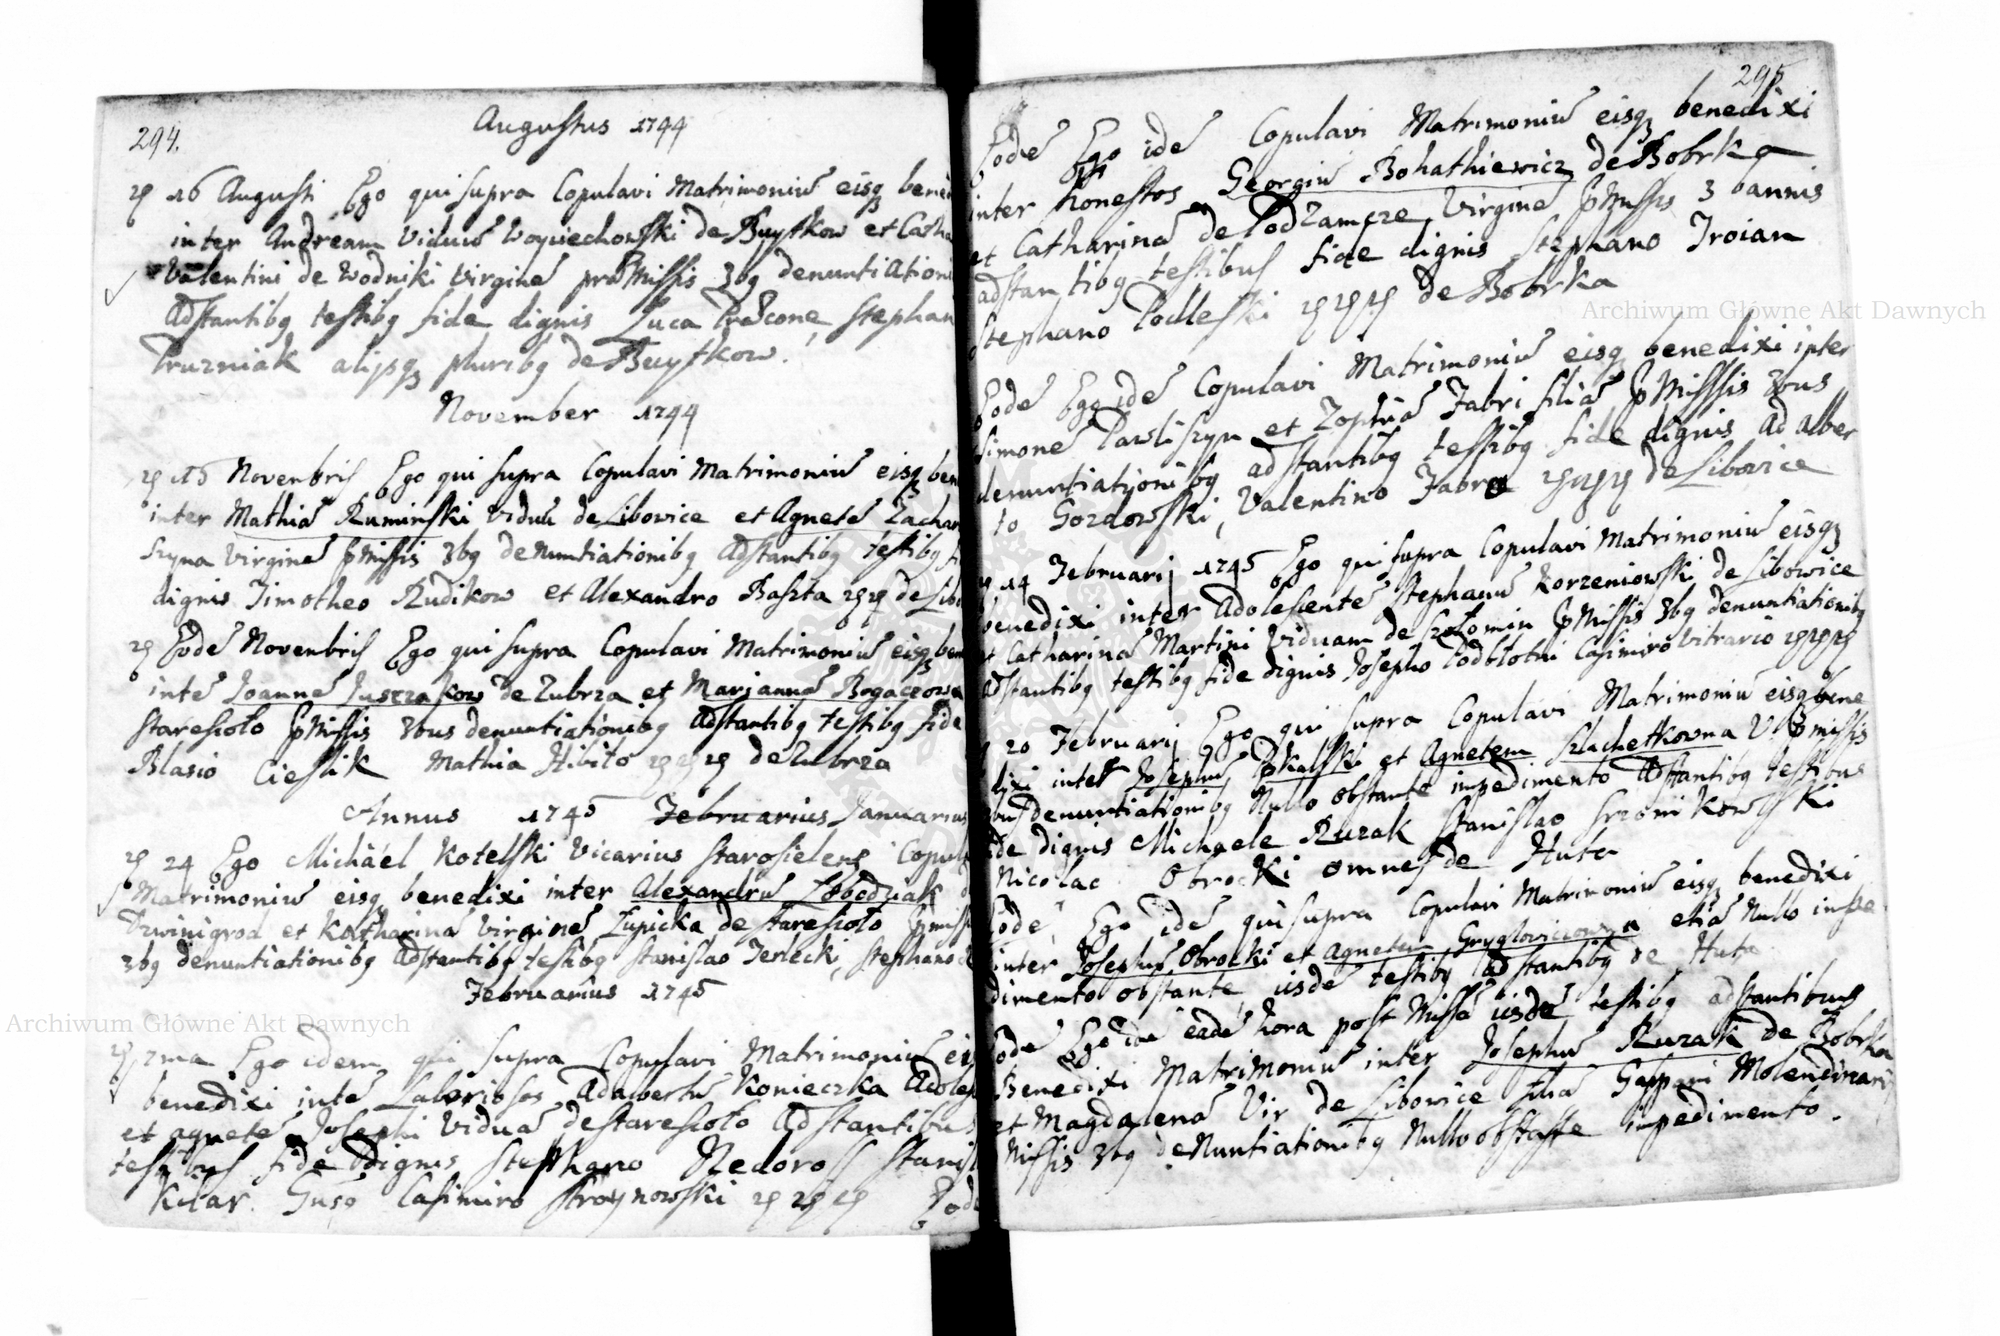 294.
Augustus 1744
16 Augusti Ego qui supra Copulavi Matrimoniū eisq bene
inter Andream Viduū Woyciechowski de Buytkow et Catha
Valentini de Wodniki Virginē praemissis 3bq denuntiation
Adstantibq testibq fide dignis Luca Praecone, Stephan
Pruzniak alijsq pluribq de Buytkow.
November 1744
15 Novenbris Ego qui supra Copulavi Matrimoniū eisq ben
inter Mathiā Ruminski Viduū de Libowice et Agnetē Zachar
szyna Virginē pmissis 3bq denuntiationibq Adstantibq testibq fi
dignis Timotheo Rudikow et Alexandro Baszta de Libo
Eodē Novenbris Ego qui supra Copulavi Matrimoniū eisq ben
intē Joannē Juszzakow de Zubrza et Mariannā Bogaczown
staresioło pmissis 3bus denuntiationibq Adstantibq testibq fide
Blasio Cieslik Mathia Hibito de Zubrza
Annus 1745 Februarius Januarius
24 Ego Michäel Kotelski Vicarius Starosielens Copul
Matrimoniū eisq benedixi inter Alexandrū Łobodziak d
Dzwinigrod et Katharinā Virginē Łupicka de staresioło pmiss
3bq denuntiationibq Adstantibq testibq Stanislao Terlecki, Stephano
Februarius 1745
7ma Ego idem qui supra Copulavi Matrimoniū eis
benedixi intē Laboriosos Adalbertū Konieczka Adoles
et agnetē Josephi Viduā de staresioło Adstantibus
testibus fide dignis Stephano Nedoross Stanisl
Kitar. Casimiro Stroynowski Eode
295
Eodē Ego idē Copulavi Matrimoniū eisq benedixi
inter honestos Georgiū Bohathiewicz de Bobrka
et Catharinā de Podzamcze Virginē pmissis 3 bannis
adstantibq testibus fide dignis Stephano Troian
Stephano Podleski de Bobrka
Eodē Ego idē Copulavi Matrimoniū eisq benedixi inter
Simonē Pawliszyn et Zophiā Fabri filiā pmissis 3bus
denuntiationibq adstantibq testibq fide dignis Adalber
to Gozdowski, Valentino Fabro de Libowice
14 Februarij 1745 Ego qui supra Copulavi Matrimoniū eisq
benedixi inter Adolescentē Stephanū Korzeniowski de Libowice
et Catharinā Martini Viduam de Szołomin pmissis 3bq denuntiationibq
Adstantibq testibq fide dignis Josepho Podblotni Casimiro Vitrario
20 Februarij Ego qui supra Copulavi Matrimoniū eisq bene
dixi inter Josephū et Agnetem Szlachetkowna V pmissis
3bus denuntiationibq Nullo obstante impedimento Adstantibq testibus
fide dignis Michaele Ruzak Stanislao Srzonikowski
Nicolao Obrocki omnes de Huta
Eodē Ego idē qui supra Copulavi Matrimoniū eisq benedixi
inter Josephū Obrocki et Agnetem Gryglowiczowna etiā Nullo impe
dimento obstante iisdē testibq adstantibq de Huta
Eodē Ego idē eadē hora post Missā iisdē testibq adstantibus
Benedixi Matrimoniū inter Josephū Ruzak de Bobrka
et Magdalenā Vir de Libowice filiā Gaspari Molendinarij
Missis 3bq denuntiationibq Nullo obstante impedimento.
Archiwum Główne Akt Dawnych
Archiwum Główne Akt Dawnych